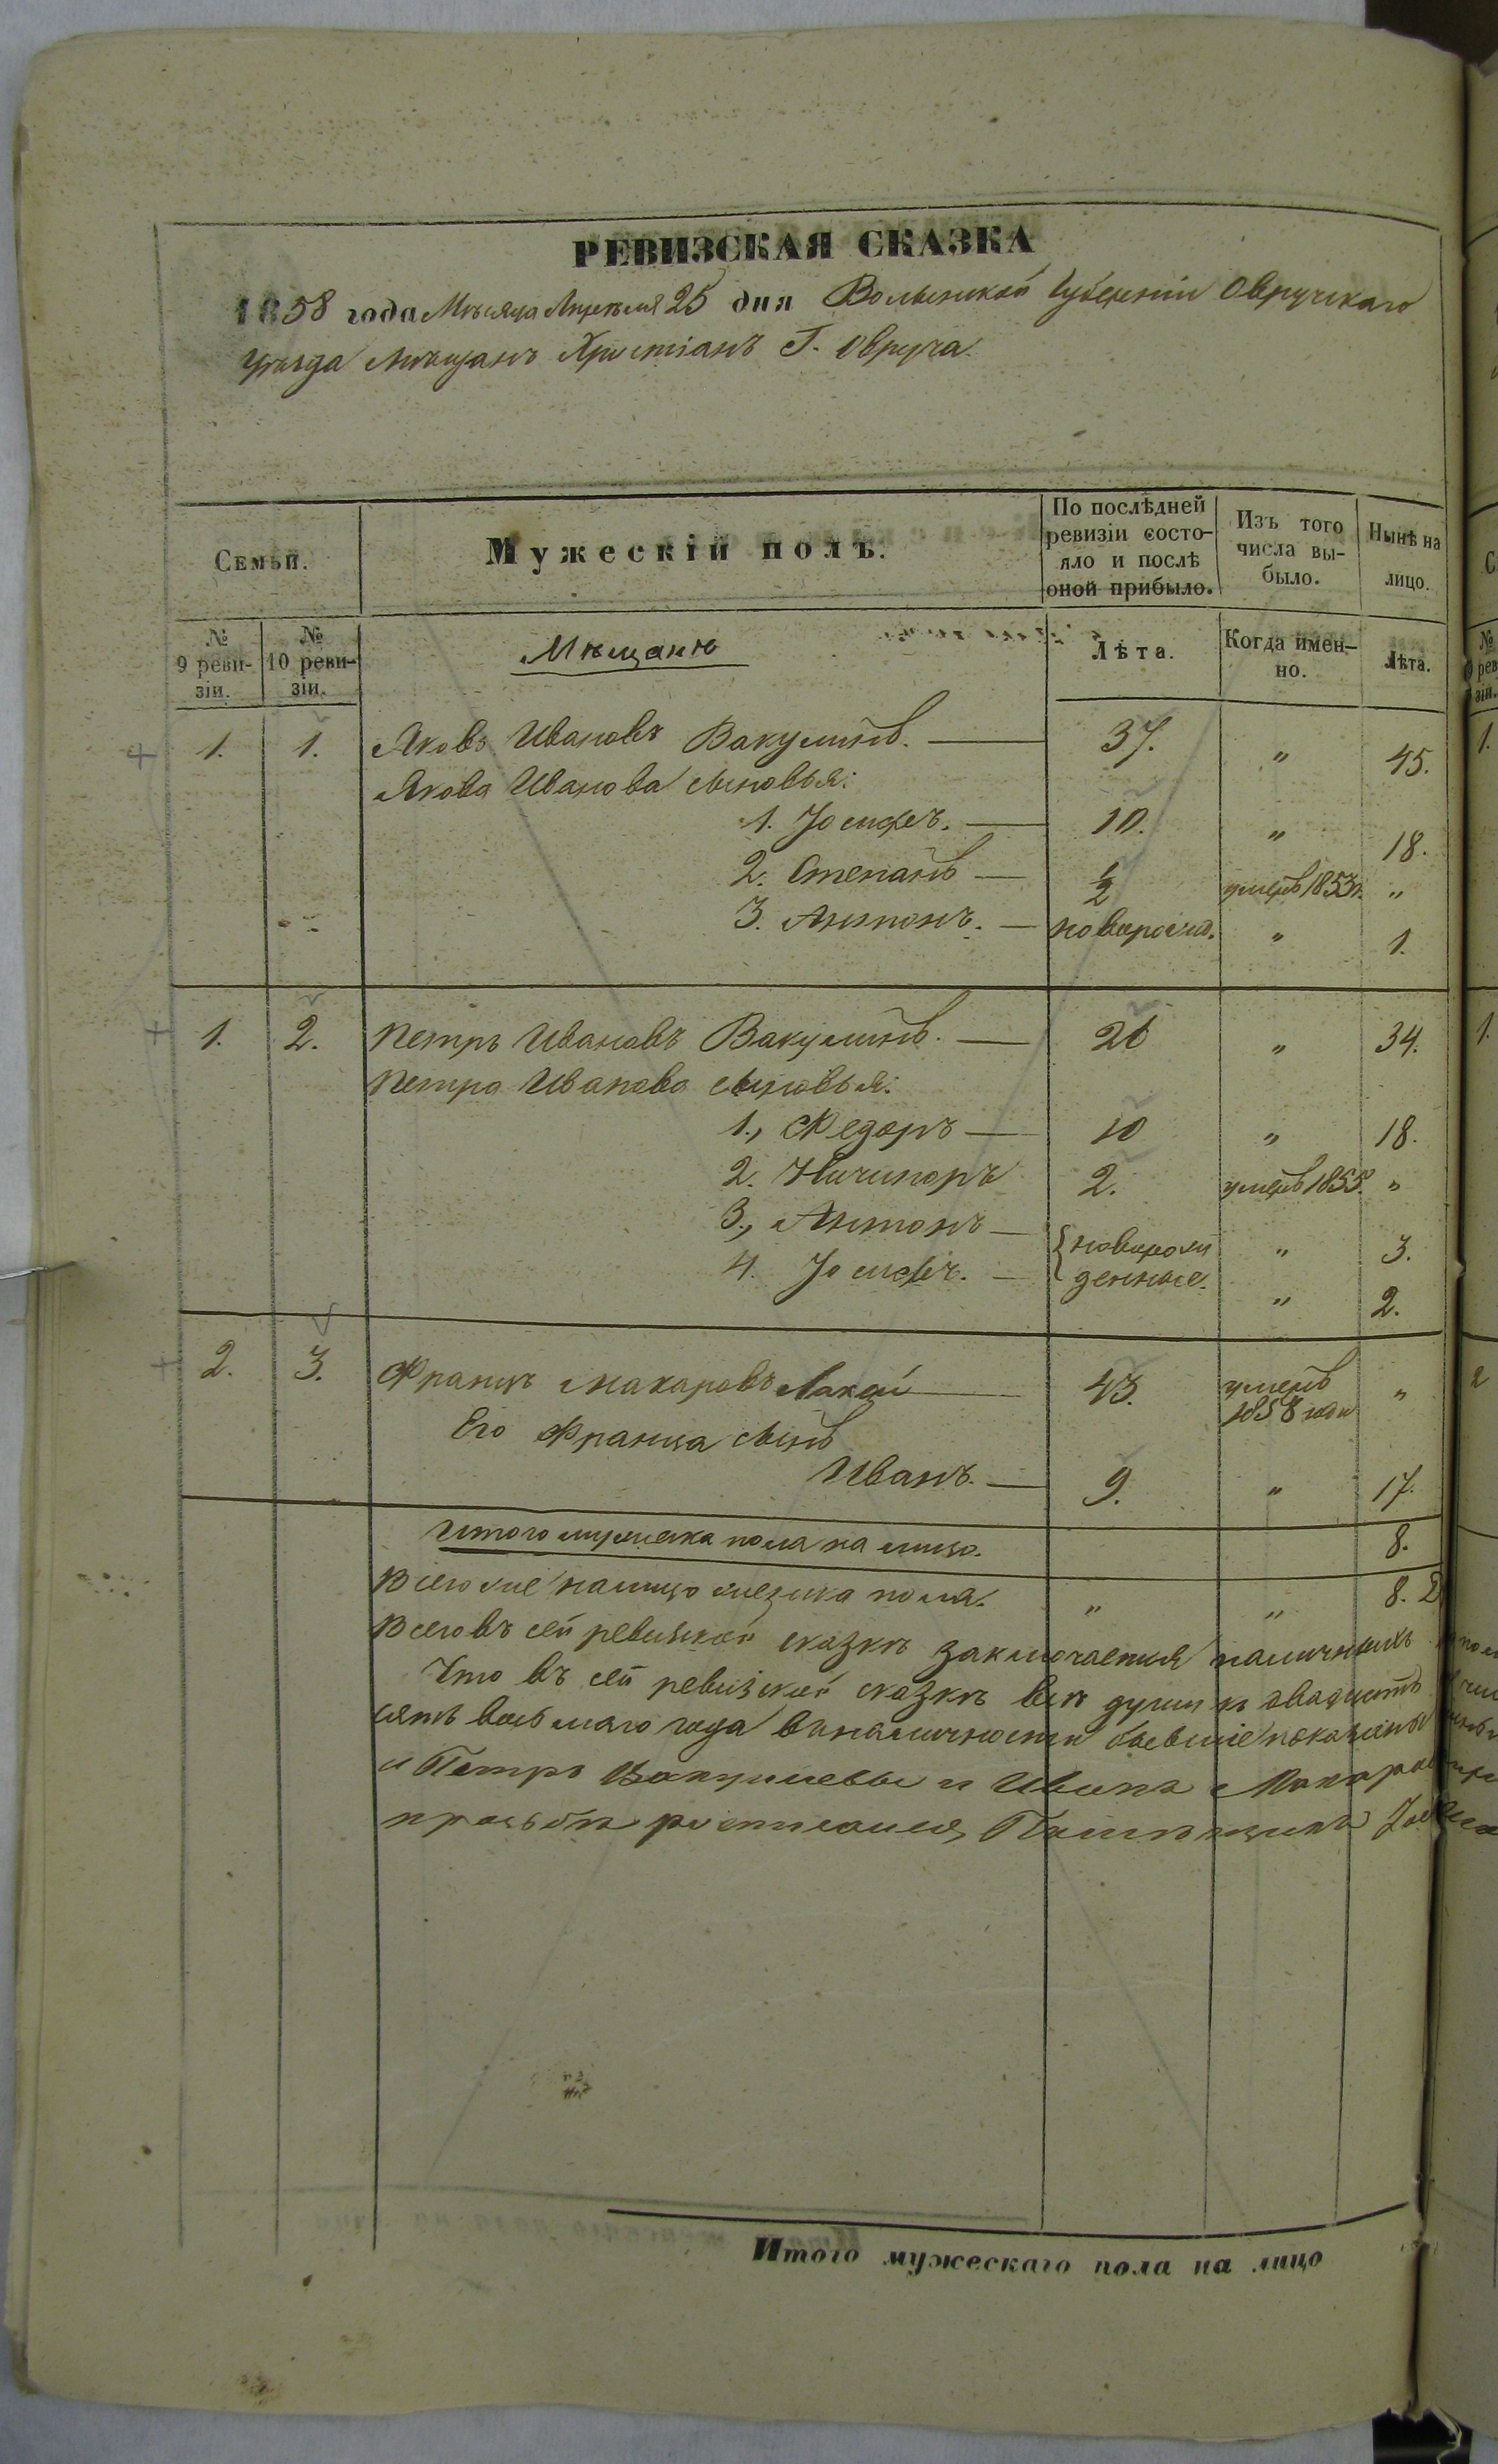 РЕВИЗСКАЯ СКАЗКА
1858 года Мѣсяца Апрѣля 25 дня Волынской Губерніи Овручскаго
Уѣзда Мѣщанъ Христіанъ Г. Овруча.
Семьи.
Мужескій полъ.
По послѣдней ревизіи состояло и послѣ оной прибыло.
Изъ того числа выбыло.
Нынѣ на лицо.
№ 9 ревизіи.
№ 10 ревизіи.
Мѣщане
Лѣта.
Когда именно.
Лѣта.
1. 1. Яковъ Ивановъ Вакулинъ. — 37. " 45.
Якова Иванова сыновья:
1. Іосифъ. — 10. " 18.
2. Степанъ — ½ умеръ 1853г. "
3. Антонъ. — новорожд. " 1.
1. 2. Петръ Ивановъ Вакулинъ. — 26 " 34.
Петра Иванова сыновья:
1., Федоръ — 10 " 18.
2. Ничипоръ 2. умеръ 1855. "
3., Антонъ — новорож " 3.
4. Іосифъ. — денные. " 2.
2. 3. Францъ Макаровъ Лакей — 43. умеръ 1858 года "
Его Франца сынъ
Иванъ. — 9. " 17.
Итого мужеска пола на лицо. 8.
Всего же налицо мезска пола. " " 8.
Всего въ сей ревизской сказкѣ заключается наличныхъ
Что въ сей ревизской сказкѣ всѣ души къ двадцать
сятъ восьмаго года въ наличности бывшіе показаны
и Петръ Вакулевы и Иванъ Макаровъ
просьбѣ росписался
Итого мужескаго пола на лицо